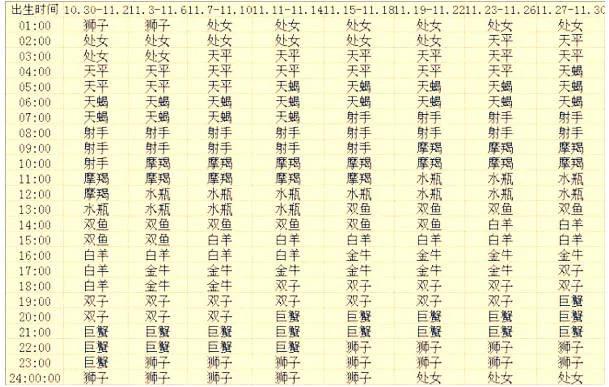 出生时间 10.30-11.2 11.3-6 11.7-11.10 11.11-11.14 11.15-11.18 11.19-11.22 11.23-11.26 11.27-11.30
01:00 狮子 狮子 处女 处女 处女 处女 处女 处女
02:00 处女 处女 处女 处女 处女 处女 天平 天平
03:00 处女 处女 天平 天平 天平 天平 天平 天平
04:00 天平 天平 天平 天平 天平 天平 天平 天蝎
05:00 天平 天平 天平 天蝎 天蝎 天蝎 天蝎 天蝎
06:00 天蝎 天蝎 天蝎 天蝎 天蝎 天蝎 天蝎 天蝎
07:00 天蝎 天蝎 天蝎 天蝎 射手 射手 射手 射手
08:00 射手 射手 射手 射手 射手 射手 射手 射手
09:00 射手 射手 射手 射手 射手 摩羯 摩羯 摩羯
10:00 射手 摩羯 摩羯 摩羯 摩羯 摩羯 摩羯 摩羯
11:00 摩羯 摩羯 摩羯 摩羯 摩羯 水瓶 水瓶 水瓶
12:00 摩羯 水瓶 水瓶 水瓶 水瓶 水瓶 水瓶 水瓶
13:00 水瓶 水瓶 水瓶 水瓶 双鱼 双鱼 双鱼 双鱼
14:00 双鱼 双鱼 双鱼 双鱼 双鱼 双鱼 白羊 白羊
15:00 双鱼 双鱼 白羊 白羊 白羊 白羊 白羊 白羊
16:00 白羊 白羊 白羊 白羊 金牛 金牛 金牛 金牛
17:00 白羊 金牛 金牛 金牛 金牛 金牛 金牛 双子
18:00 白羊 金牛 金牛 双子 双子 双子 双子 双子
19:00 双子 双子 双子 双子 双子 双子 双子 巨蟹
20:00 双子 双子 双子 巨蟹 巨蟹 巨蟹 巨蟹 巨蟹
21:00 巨蟹 巨蟹 巨蟹 巨蟹 巨蟹 巨蟹 巨蟹 巨蟹
22:00 巨蟹 巨蟹 巨蟹 巨蟹 狮子 狮子 狮子 狮子
23:00 巨蟹 狮子 狮子 狮子 狮子 狮子 狮子 狮子
24:00:00 狮子 狮子 狮子 狮子 狮子 处女 处女 处女